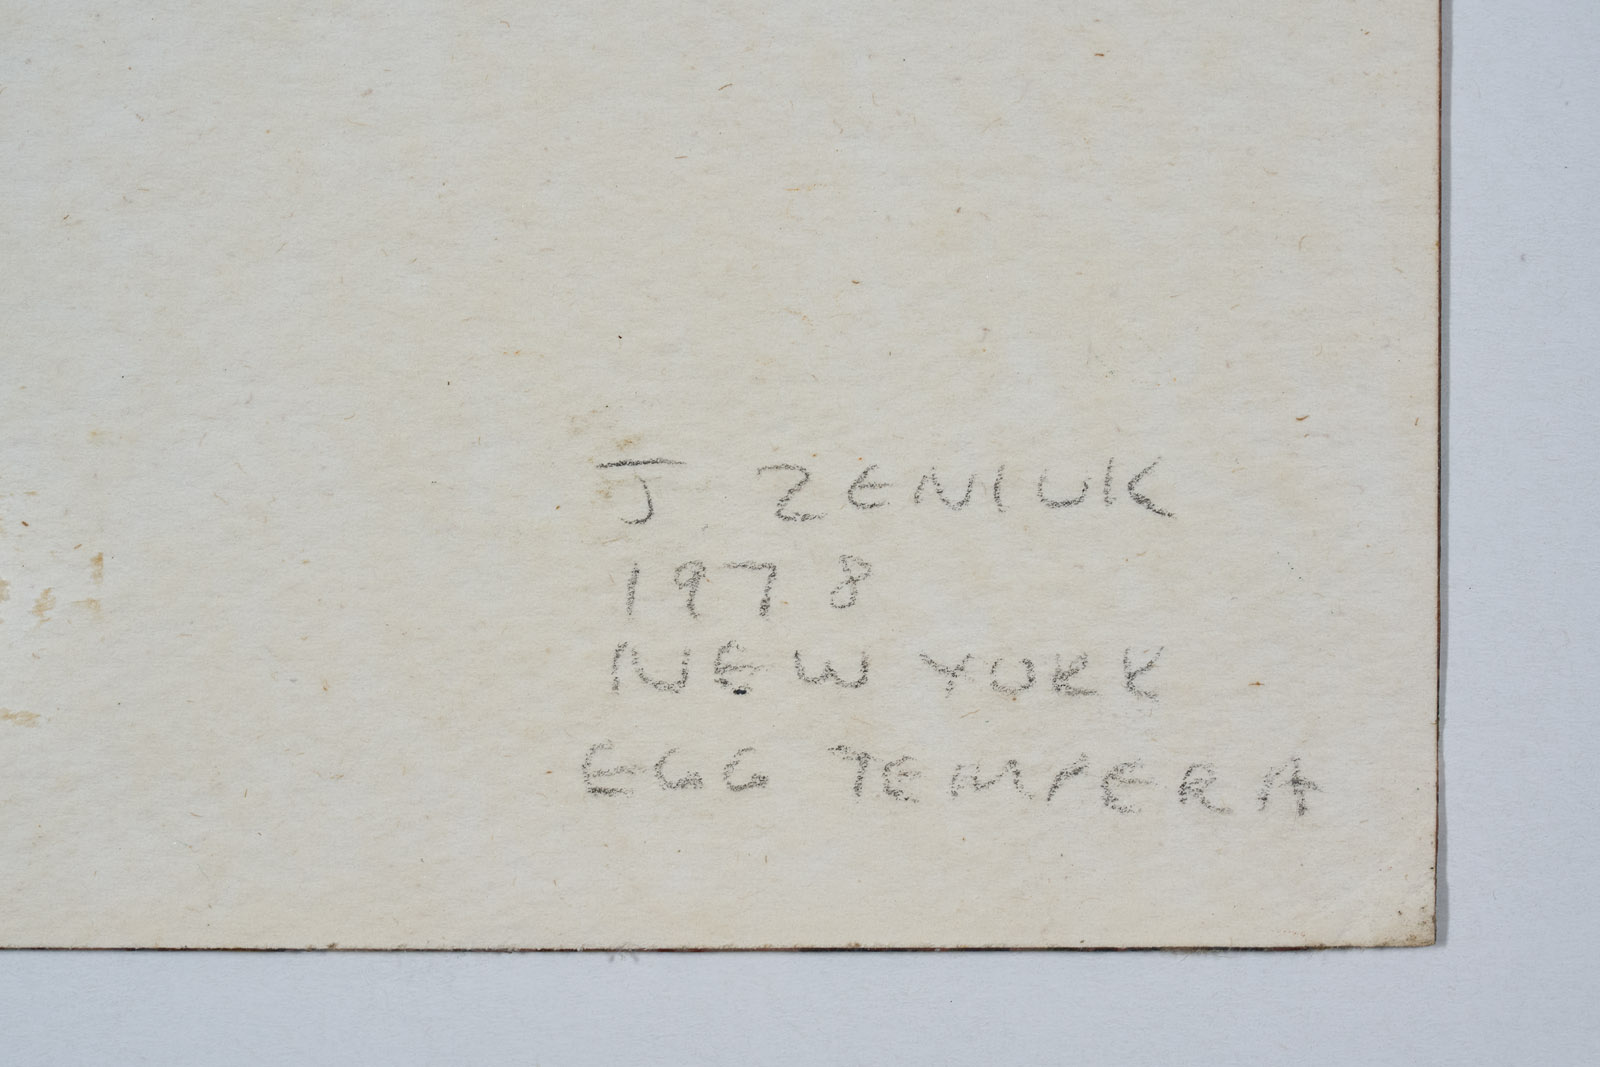 J ZENIUK
1978
NEW YORK
EGG TEMPERA